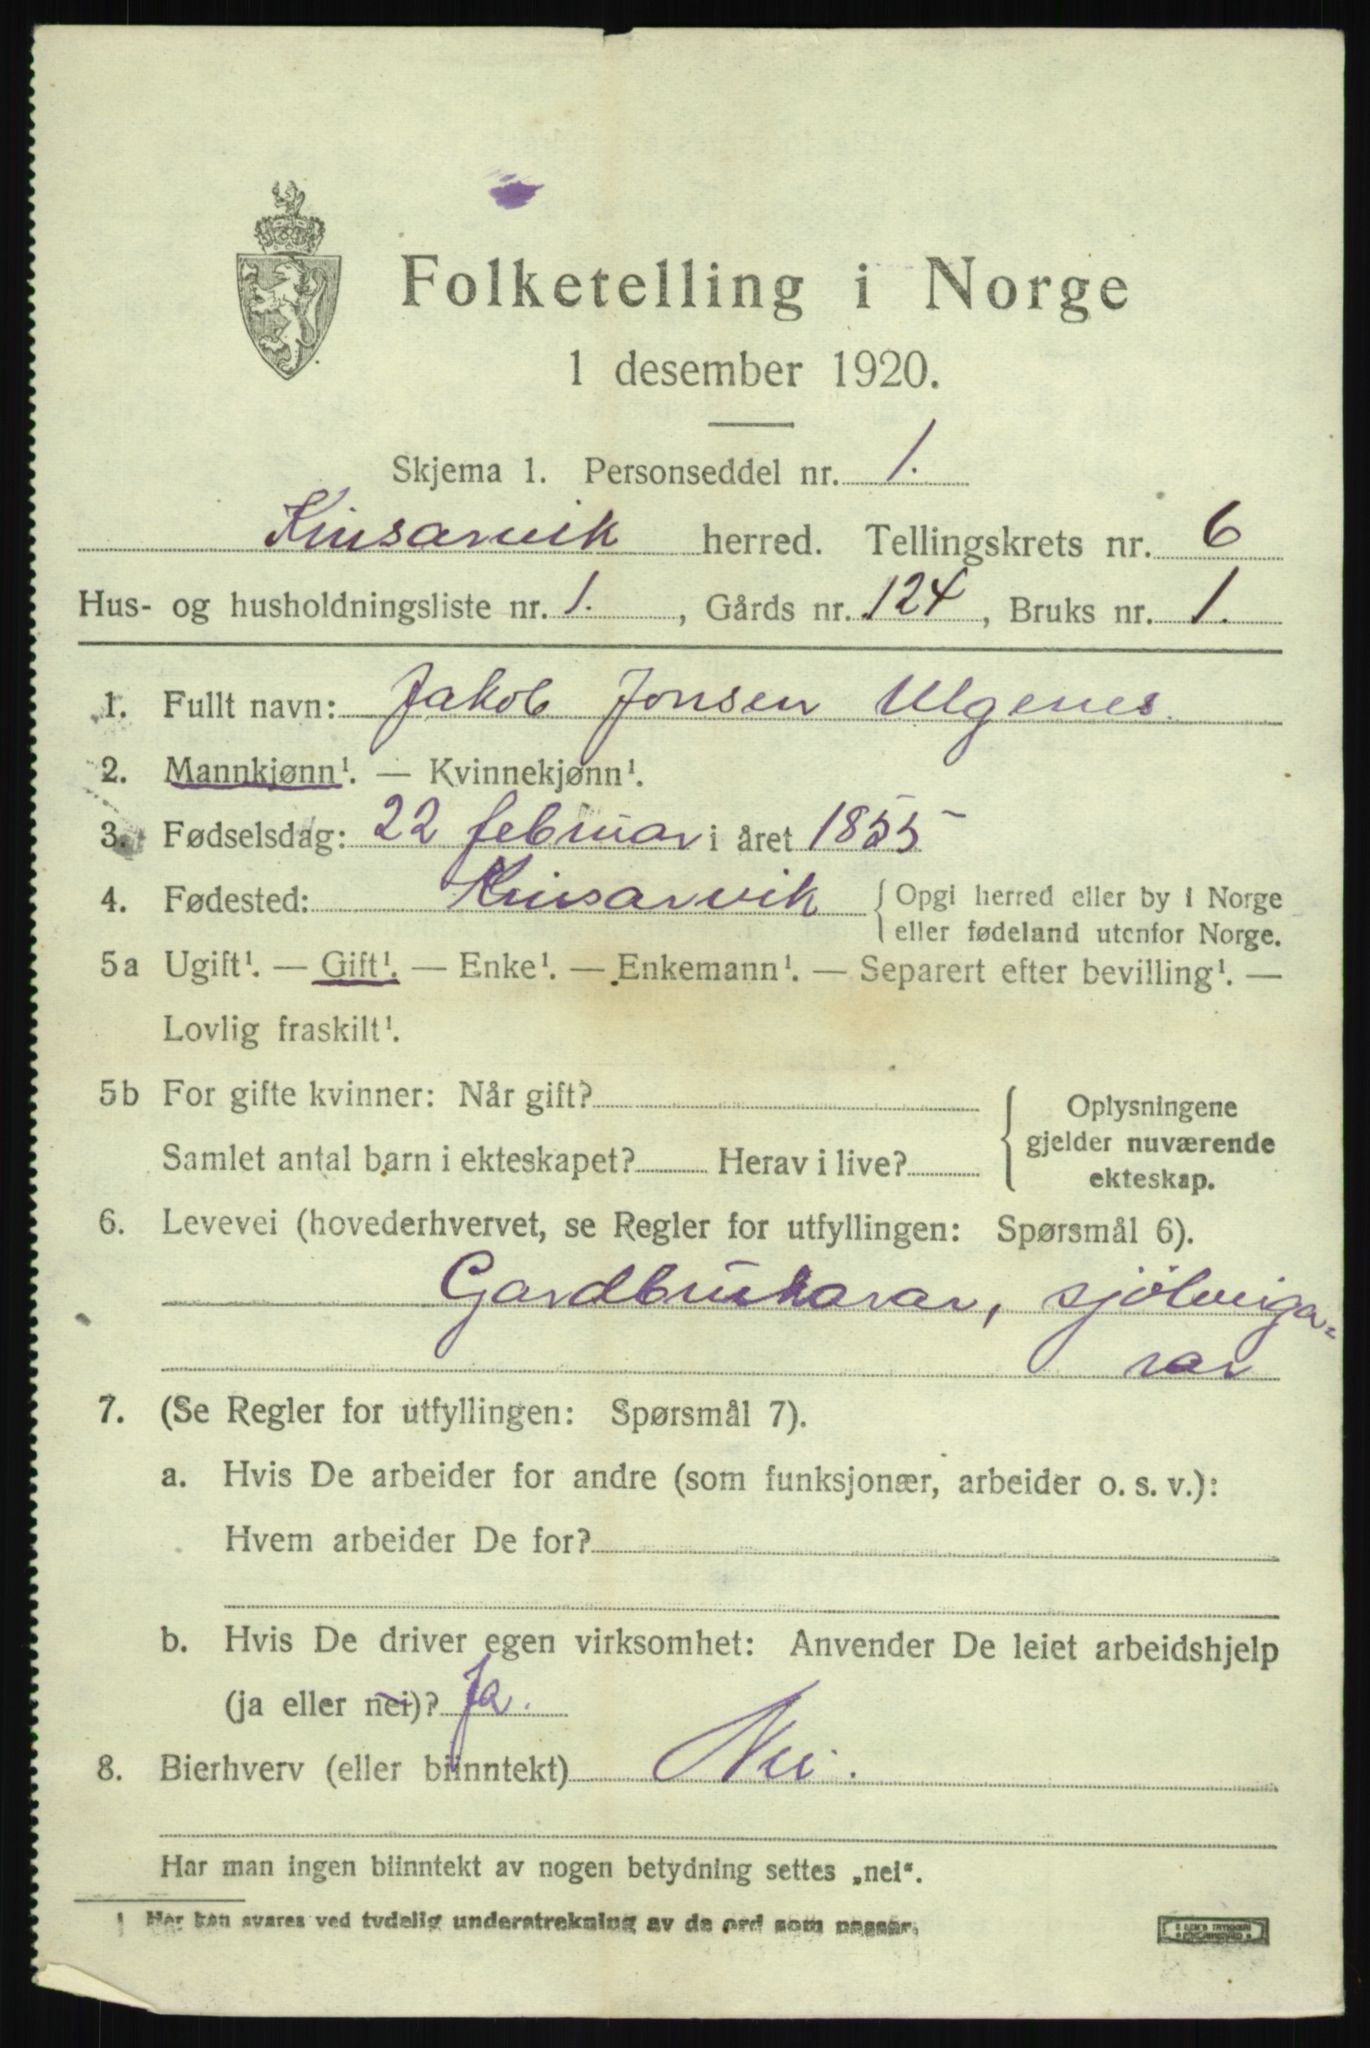 Folketelling i Norge
1 desember 1920.
Skjema 1. Personseddel nr. 1.
Kinsarvik herred. Tellingskrets nr. 6
Hus- og husholdningsliste nr. 1., Gårds nr. 124, Bruks nr. 1.
1. Fullt navn: Jakob Jonsen Ulgenes.
2. Mannkjønn¹. — Kvinnekjønn¹.
3. Fødselsdag: 22 februar i året 1855
4. Fødested: Kinsarvik { Opgi herred eller by i Norge
eller fødeland utenfor Norge.
5a Ugift¹. — Gift¹. — Enke¹. — Enkemann¹. — Separert efter bevilling¹. —
Lovlig fraskilt¹.
5b For gifte kvinner: Når gift? { Oplysningene
gjelder nuværende
Samlet antal barn i ekteskapet? Herav i live?
ekteskap.
6. Levevei (hovederhvervet, se Regler for utfyllingen: Spørsmål 6).
Gardbrukarar, sjölveiga=
rar
7. (Se Regler for utfyllingen: Spørsmål 7).
a. Hvis De arbeider for andre (som funksjonær, arbeider o. s. v.):
Hvem arbeider De for?
b. Hvis De driver egen virksomhet: Anvender De leiet arbeidshjelp
(ja eller nei)? Ja.
8. Bierhverv (eller biinntekt) Nei.
Har man ingen biinntekt av nogen betydning settes „nei“.
1 Her kan svares ved tydelig understrekning av de ord som passer.